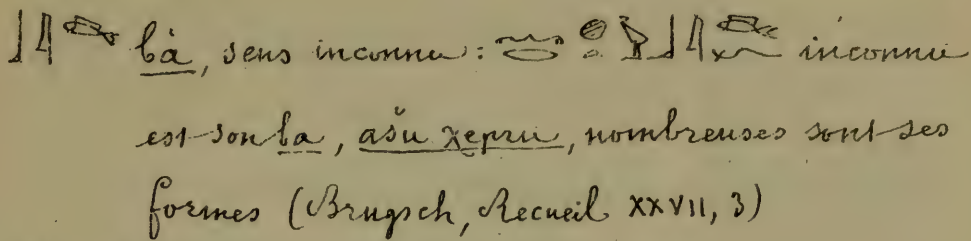 bȧ, sens inconnu: inconnu
est son ba, ašu χepru, nombreuses sont ses
formes (Brugsch, Recueil XXVII, 3)